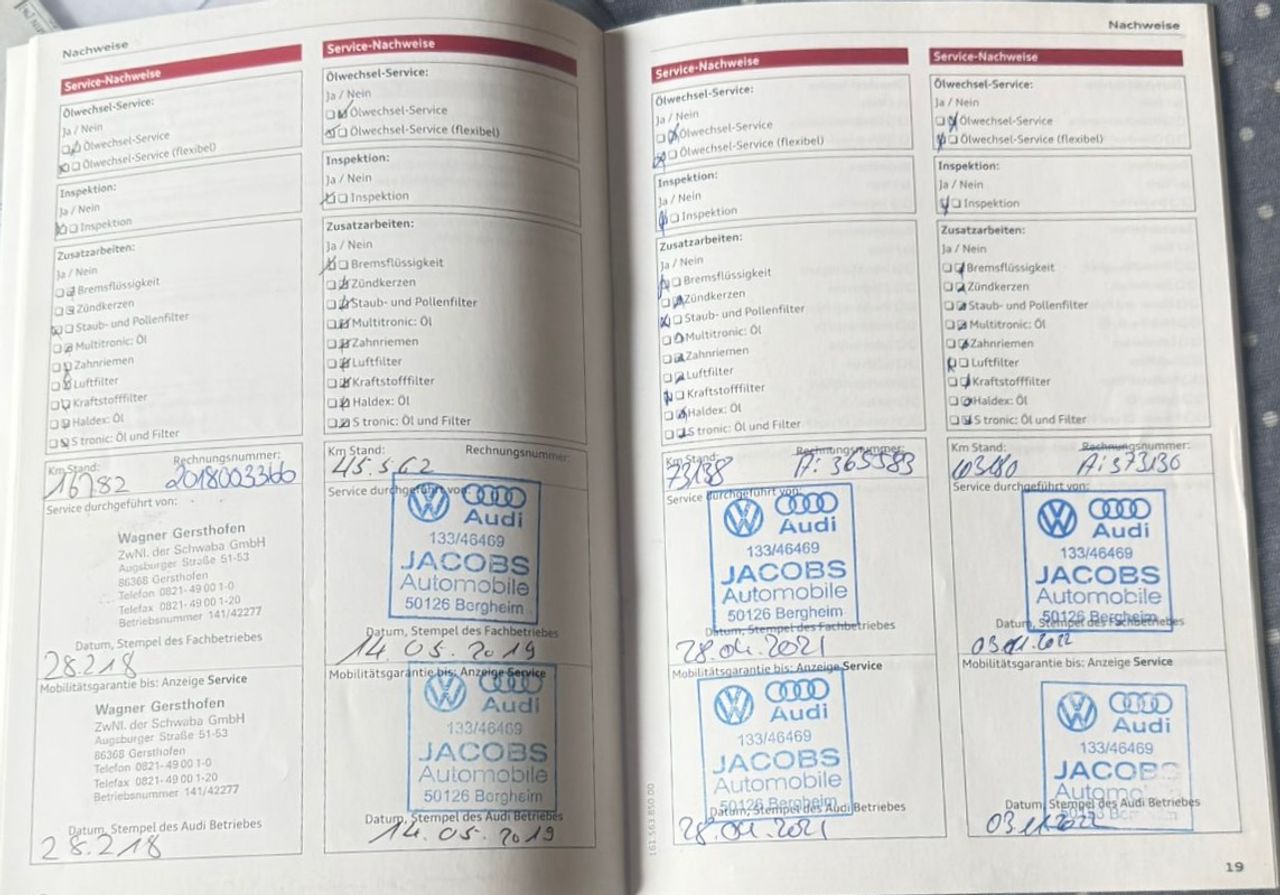 Nachweise
Service-Nachweise
Ölwechsel-Service:
Ja / Nein
Ölwechsel-Service
Ölwechsel-Service (flexibel)
Inspektion:
Ja / Nein
Inspektion
Zusatzarbeiten:
Ja / Nein
Bremsflüssigkeit
Zündkerzen
Staub- und Pollenfilter
Multitronic: Öl
Zahnriemen
Luftfilter
Kraftstofffilter
Haldex: Öl
S tronic: Öl und Filter
Km Stand: Rechnungsnummer:
16782 2018003366
Service durchgeführt von:
Wagner Gersthofen
ZwNl. der Schwaba GmbH
Augsburger Straße 51-53
86368 Gersthofen
Telefon 0821- 49 00 1-0
Telefax 0821- 49 00 1-20
Betriebsnummer 141/42277
Datum, Stempel des Fachbetriebes
28.2.18
Mobilitätsgarantie bis: Anzeige Service
Wagner Gersthofen
ZwNl. der Schwaba GmbH
Augsburger Straße 51-53
86368 Gersthofen
Telefon 0821- 49 00 1-0
Telefax 0821- 49 00 1-20
Betriebsnummer 141/42277
Datum, Stempel des Audi Betriebes
28.2.18
Service-Nachweise
Ölwechsel-Service:
Ja / Nein
Ölwechsel-Service
Ölwechsel-Service (flexibel)
Inspektion:
Ja / Nein
Inspektion
Zusatzarbeiten:
Ja / Nein
Bremsflüssigkeit
Zündkerzen
Staub- und Pollenfilter
Multitronic: Öl
Zahnriemen
Luftfilter
Kraftstofffilter
Haldex: Öl
S tronic: Öl und Filter
Km Stand: Rechnungsnummer:
45.562
Service durchgeführt von:
VW Audi
133/46469
JACOBS
Automobile
50126 Bergheim
Datum, Stempel des Fachbetriebes
14.05.2019
Mobilitätsgarantie bis: Anzeige Service
VW Audi
133/46469
JACOBS
Automobile
50126 Bergheim
Datum, Stempel des Audi Betriebes
14.05.2019
Nachweise
Service-Nachweise
Ölwechsel-Service:
Ja / Nein
Ölwechsel-Service
Ölwechsel-Service (flexibel)
Inspektion:
Ja / Nein
Inspektion
Zusatzarbeiten:
Ja / Nein
Bremsflüssigkeit
Zündkerzen
Staub- und Pollenfilter
Multitronic: Öl
Zahnriemen
Luftfilter
Kraftstofffilter
Haldex: Öl
S tronic: Öl und Filter
Km Stand: Rechnungsnummer:
73138 A: 365583
Service durchgeführt von:
VW Audi
133/46469
JACOBS
Automobile
50126 Bergheim
Datum, Stempel des Fachbetriebes
28.04.2021
Mobilitätsgarantie bis: Anzeige Service
VW Audi
133/46469
JACOBS
Automobile
50126 Bergheim
Datum, Stempel des Audi Betriebes
28.04.2021
161.563.850.00
Service-Nachweise
Ölwechsel-Service:
Ja / Nein
Ölwechsel-Service
Ölwechsel-Service (flexibel)
Inspektion:
Ja / Nein
Inspektion
Zusatzarbeiten:
Ja / Nein
Bremsflüssigkeit
Zündkerzen
Staub- und Pollenfilter
Multitronic: Öl
Zahnriemen
Luftfilter
Kraftstofffilter
Haldex: Öl
S tronic: Öl und Filter
Km Stand: Rechnungsnummer:
Service durchgeführt von:
VW Audi
133/46469
JACOBS
Automobile
50126 Bergheim
Datum, Stempel des Fachbetriebes
03.11.2022
Mobilitätsgarantie bis: Anzeige Service
VW Audi
133/46469
JACOBS
Datum, Stempel des Audi Betriebes
03.11.2022
19